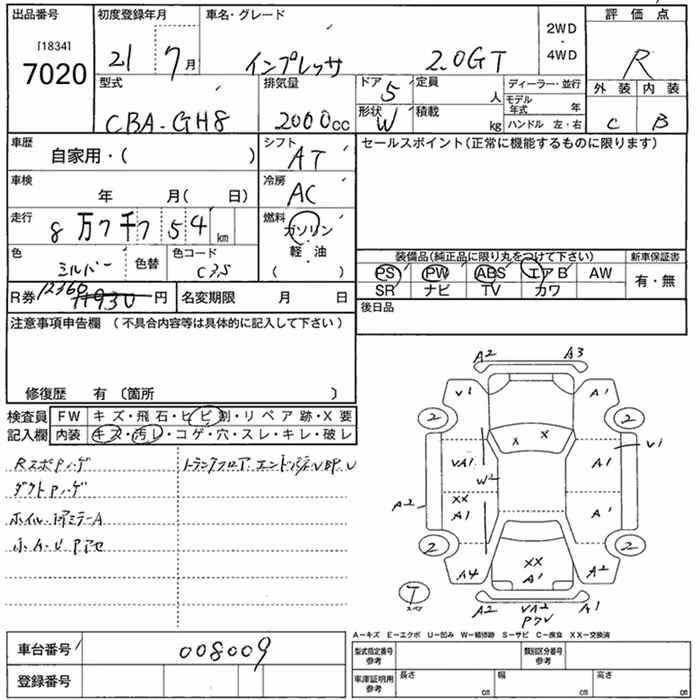 出品番号 初度登録年月 車名・グレード 2WD・4WD 評価点
[1834]
7020 21 7月 インプレッサ 2.0GT R
型式 排気量 ドア 5 定員 人 ディーラー・並行 外装 内装
CBA-GH8 2000cc 形状 W 積載 kg モデル年式 年 C B
ハンドル 左・右
車歴 自家用・( ) シフト AT セールスポイント(正常に機能するものに限ります)
車検 年 月( 日) 冷房 AC
走行 8万7千754km 燃料 ガソリン・軽・油 ( )
色 シルバー 色替 色コード C35 装備品(純正品に限り丸をつけて下さい) 新車保証書
PS PW ABS エアB AW 有・無
SR ナビ TV カワ
R券 12360 11930円 名変期限 月 日 後日品
注意事項申告欄(不具合内容等は具体的に記入して下さい)
修復歴 有 〔箇所 〕
検査員 FW キズ・飛石・ヒビ割・リペア跡・X要
記入欄 内装 キズ・汚レ・コゲ・穴・スレ・キレ・破レ
A2 A3
V1 A1
2 2
X X
VA1 A1 V1
W2
XX
A2 A1 A1
2 2
A4 XX A1 A2
T A2 VA2 A1
A-キズ E-エクボ U-凹み W-補修跡 S-サビ C-腐食 XX-交換済
車台番号 008009 型式指定番号 参考 類別区分番号 参考
登録番号 車庫証明用 参考 長さ cm 幅 cm 高さ cm